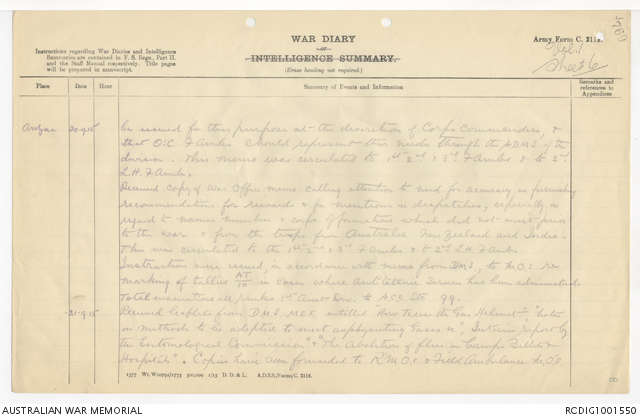 WAR DIARY
or
INTELLIGENCE SUMMARY.
(Erase heading not required.)
Army Form C. 2118.
Sheet 6
Instructions regarding War Diaries and Intelligence
Summaries are contained in F. S. Regs., Part II.
and the Staff Manual respectively. Title pages
will be prepared in manuscript.
Place
Date
Hour
Summary of Events and Information
Remarks and
references to
Appendices
20.9.15 be issued for this purpose at the discretion of Corps Commanders, &
that O.C. F Ambs should represent their needs through the ADMS of the
division. This memo was circulated to 1st 2nd & 3rd F Ambs & to 2nd
L.H. F Amb.
Received copy of War Office memo calling attention to need for accuracy in furnishing
recommendations for reward & for mentions in despatches, especially in
regard to names numbers & corps of formations which did not exist prior
to the war & from the troops from Australia New Zealand and India.
This was circulated to the 1st 2nd & 3rd F Ambs & to 2nd L.H. F Amb.
Instructions were issued, in accordance with memo from DMS, to M.O.s re
marking of tallies AT/10 in cases where Anti Tetanic Serum has been administered
Total evacuations all ranks 1st Aust Div. to ACS etc 99.
21.9.15 Received leaflets from D.M.S. M.E.F. entitled How to use the Gas Helmet, "Notes
on methods to be adopted to meet asphyxiating gases", "Interim report by
the Entomological Commission" & "The Abolition of flies in Camps Billets &
Hospitals". Copies have been forwarded to R.M.O.s & Field Ambulance
1577 Wt. W10791/1773 500,000 1/15 D. D. & L. A.D.S.S./Forms/C. 2118.
8
AUSTRALIAN WAR MEMORIAL
RCDIG1001550